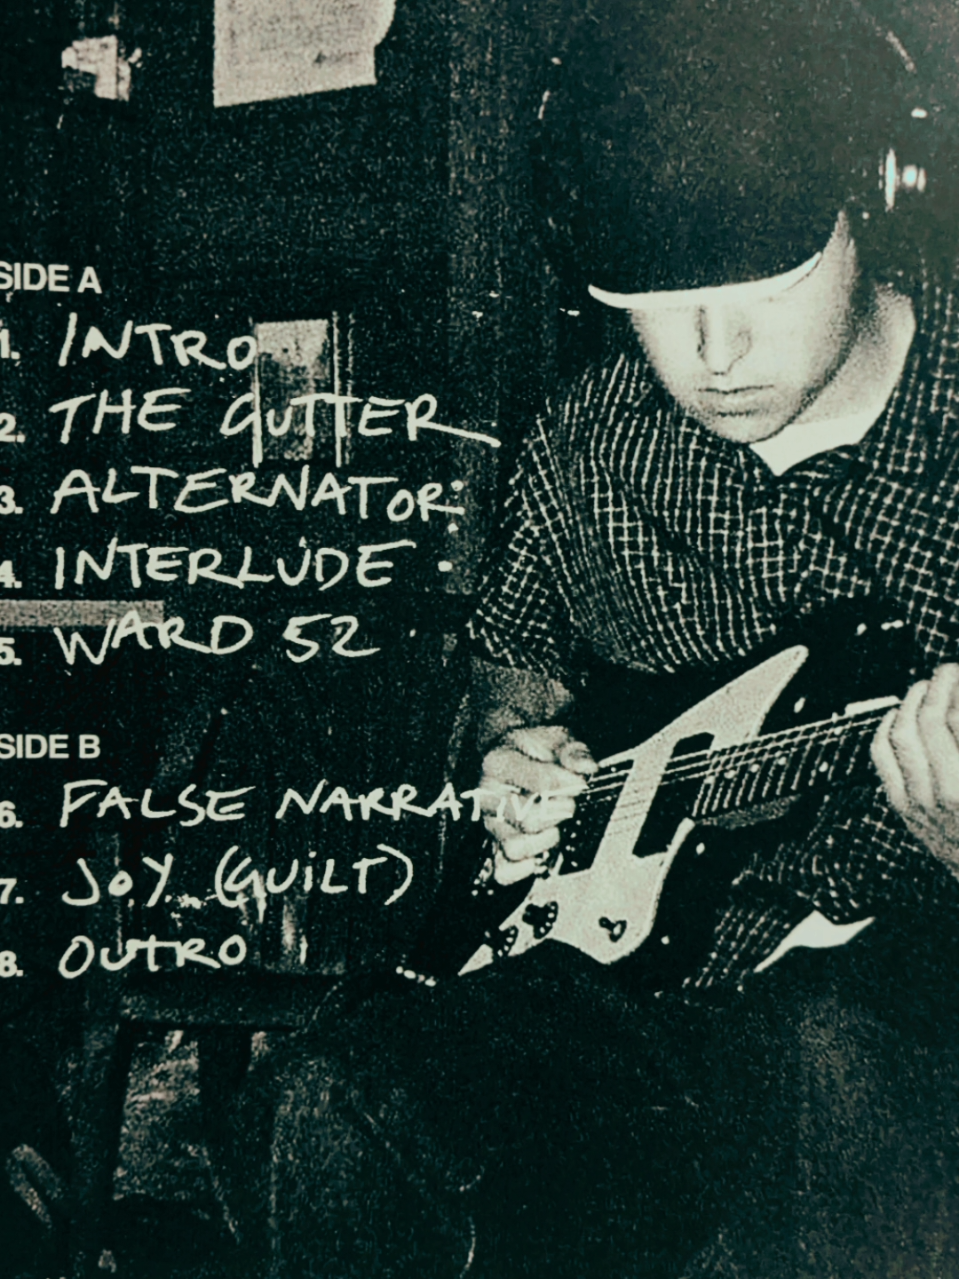 SIDE A
1. INTRO
2. THE GUTTER
3. ALTERNATOR
4. INTERLUDE
5. WARD 52
SIDE B
6. FALSE NARRATIVE
7. JOY (GUILT)
8. OUTRO